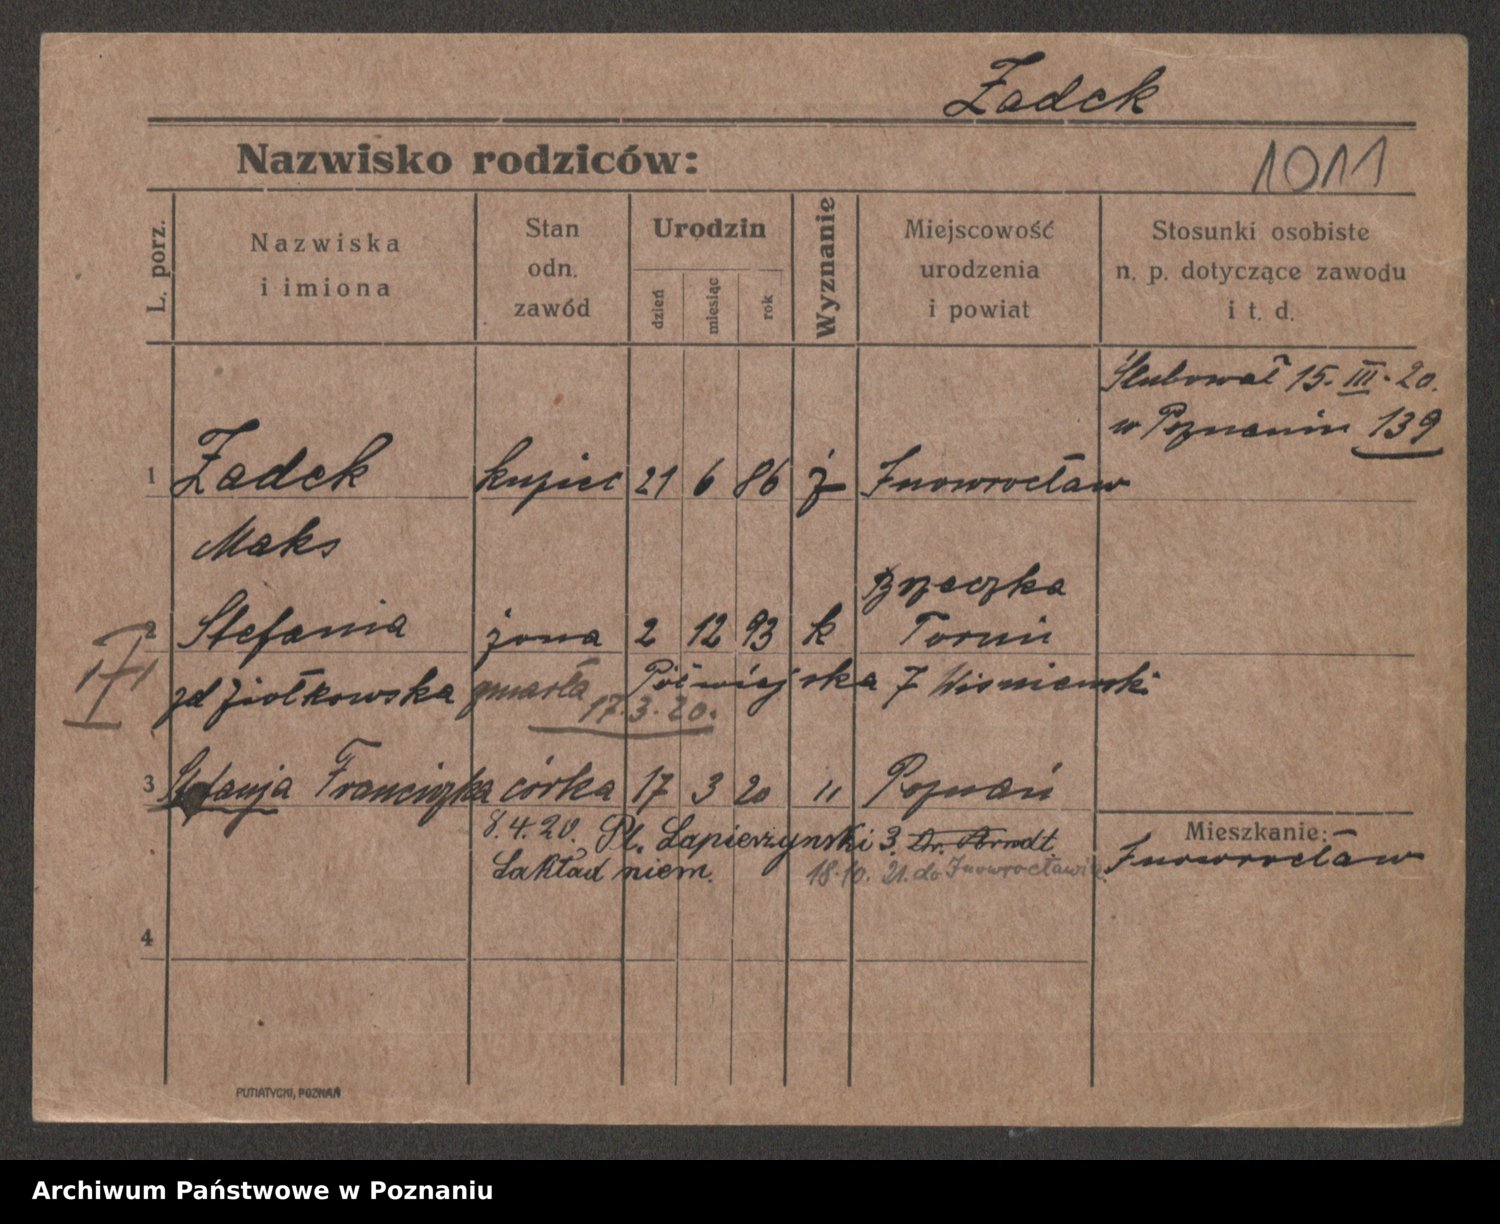 Zadek
Nazwisko rodziców:
1011
L. porz.
Nazwiska
i imiona
Stan
odn.
zawód
Urodzin
dzień
miesiąc
rok
Wyznanie
Miejscowość
urodzenia
i powiat
Stosunki osobiste
n. p. dotyczące zawodu
i t. d.
Ślubował 15. III. 20.
w Poznaniu 139
1 Zadek kupiec 21 6 86 ż Inowrocław
Maks
2 Stefania żona 2 12 93 k Toruń
zd Ziółkowska zmarła Półwiejska 7 Wisniewski
17.3.20.
3 Stefanja Franciszka córka 17 3 20 " Poznań
8.4.20. Pl. Sapierzynski 3. Dr. Arndt
Zakład niem. 18.10. 21. do Inowrocławia.
Mieszkanie:
Inowrocław
4
PUTIATYCKI, POZNAŃ
Archiwum Państwowe w Poznaniu